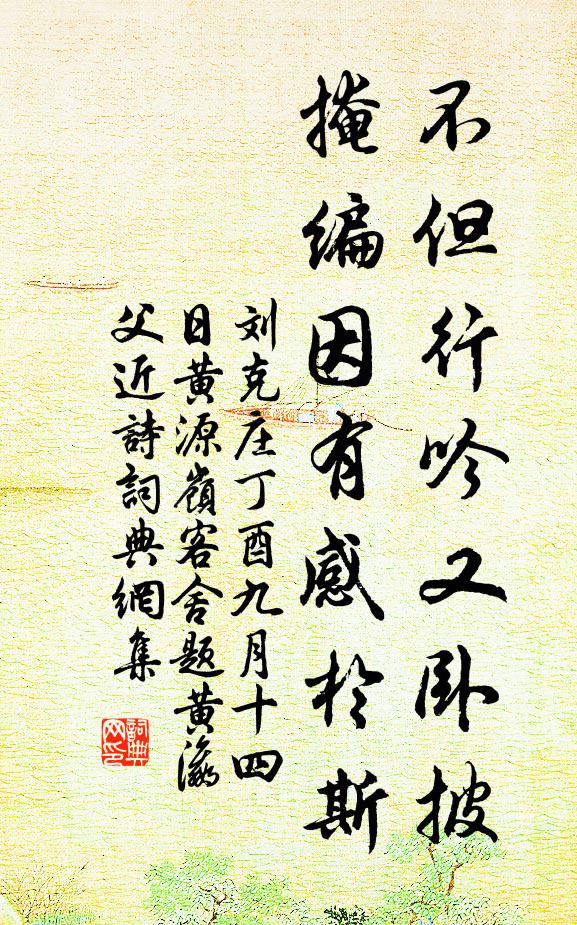 不但行吟又卧披
掩编因有感於斯
刘克庄丁酉九月十四
日黄源嶺客舍题黄瀛
父近詩詞典網集
詞典
网印